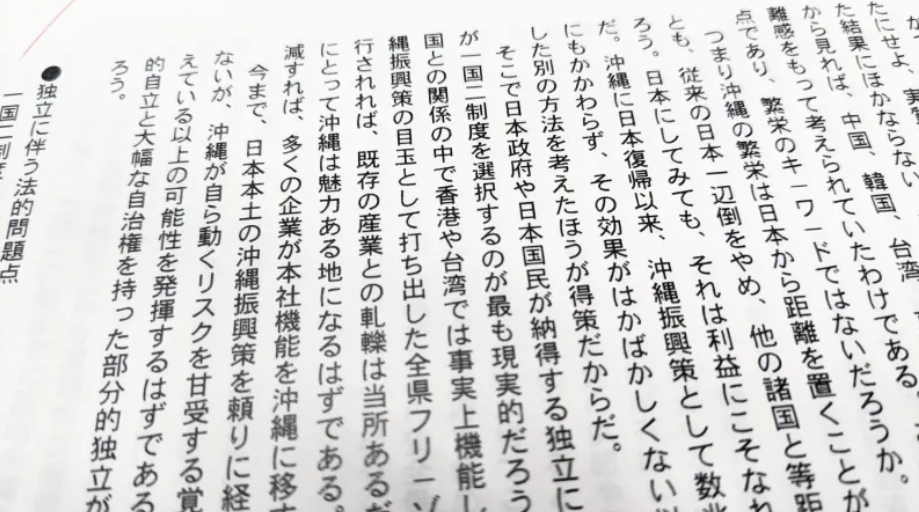 が、実
たにせよ、実質
た結果にほかならない
から見れば、中国、韓国、台湾
離感をもって考えられていたわけである
点であり、繁栄のキーワードではないだろうか。
つまり沖縄の繁栄は日本から距離を置くことが
とも、従来の日本一辺倒をやめ、他の諸国と等距
ろう。日本にしてみても、それは利益にこそなれ
だ。沖縄に日本復帰以来、沖縄振興策として数兆
にもかかわらず、その効果がはかばかしくない以
した別の方法を考えたほうが得策だからだ。
そこで日本政府や日本国民が納得する独立に
が一国二制度を選択するのが最も現実的だろう
国との関係の中で香港や台湾では事実上機能し
縄振興策の目玉として打ち出した全県フリーゾ
行されれば、既存の産業との軋轢は当所あるだ
にとって沖縄は魅力ある地になるはずである。
減すれば、多くの企業が本社機能を沖縄に移す
今まで、日本本土の沖縄振興策を頼りに経
ないが、沖縄が自ら動くリスクを甘受する覚
えている以上の可能性を発揮するはずである
的自立と大幅な自治権を持った部分的独立が
ろう。
●独立に伴う法的問題点
一国二制度